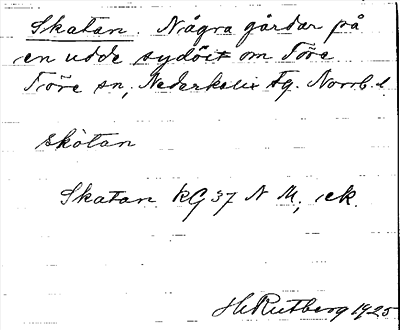 Skatan. Några gårdar på
en udde sydöst om Töre
Töre sn, Nederkalix tg. Norrb. l.
skòtan
Skatan KG 37 N M, ek.
H. Rutberg 1925